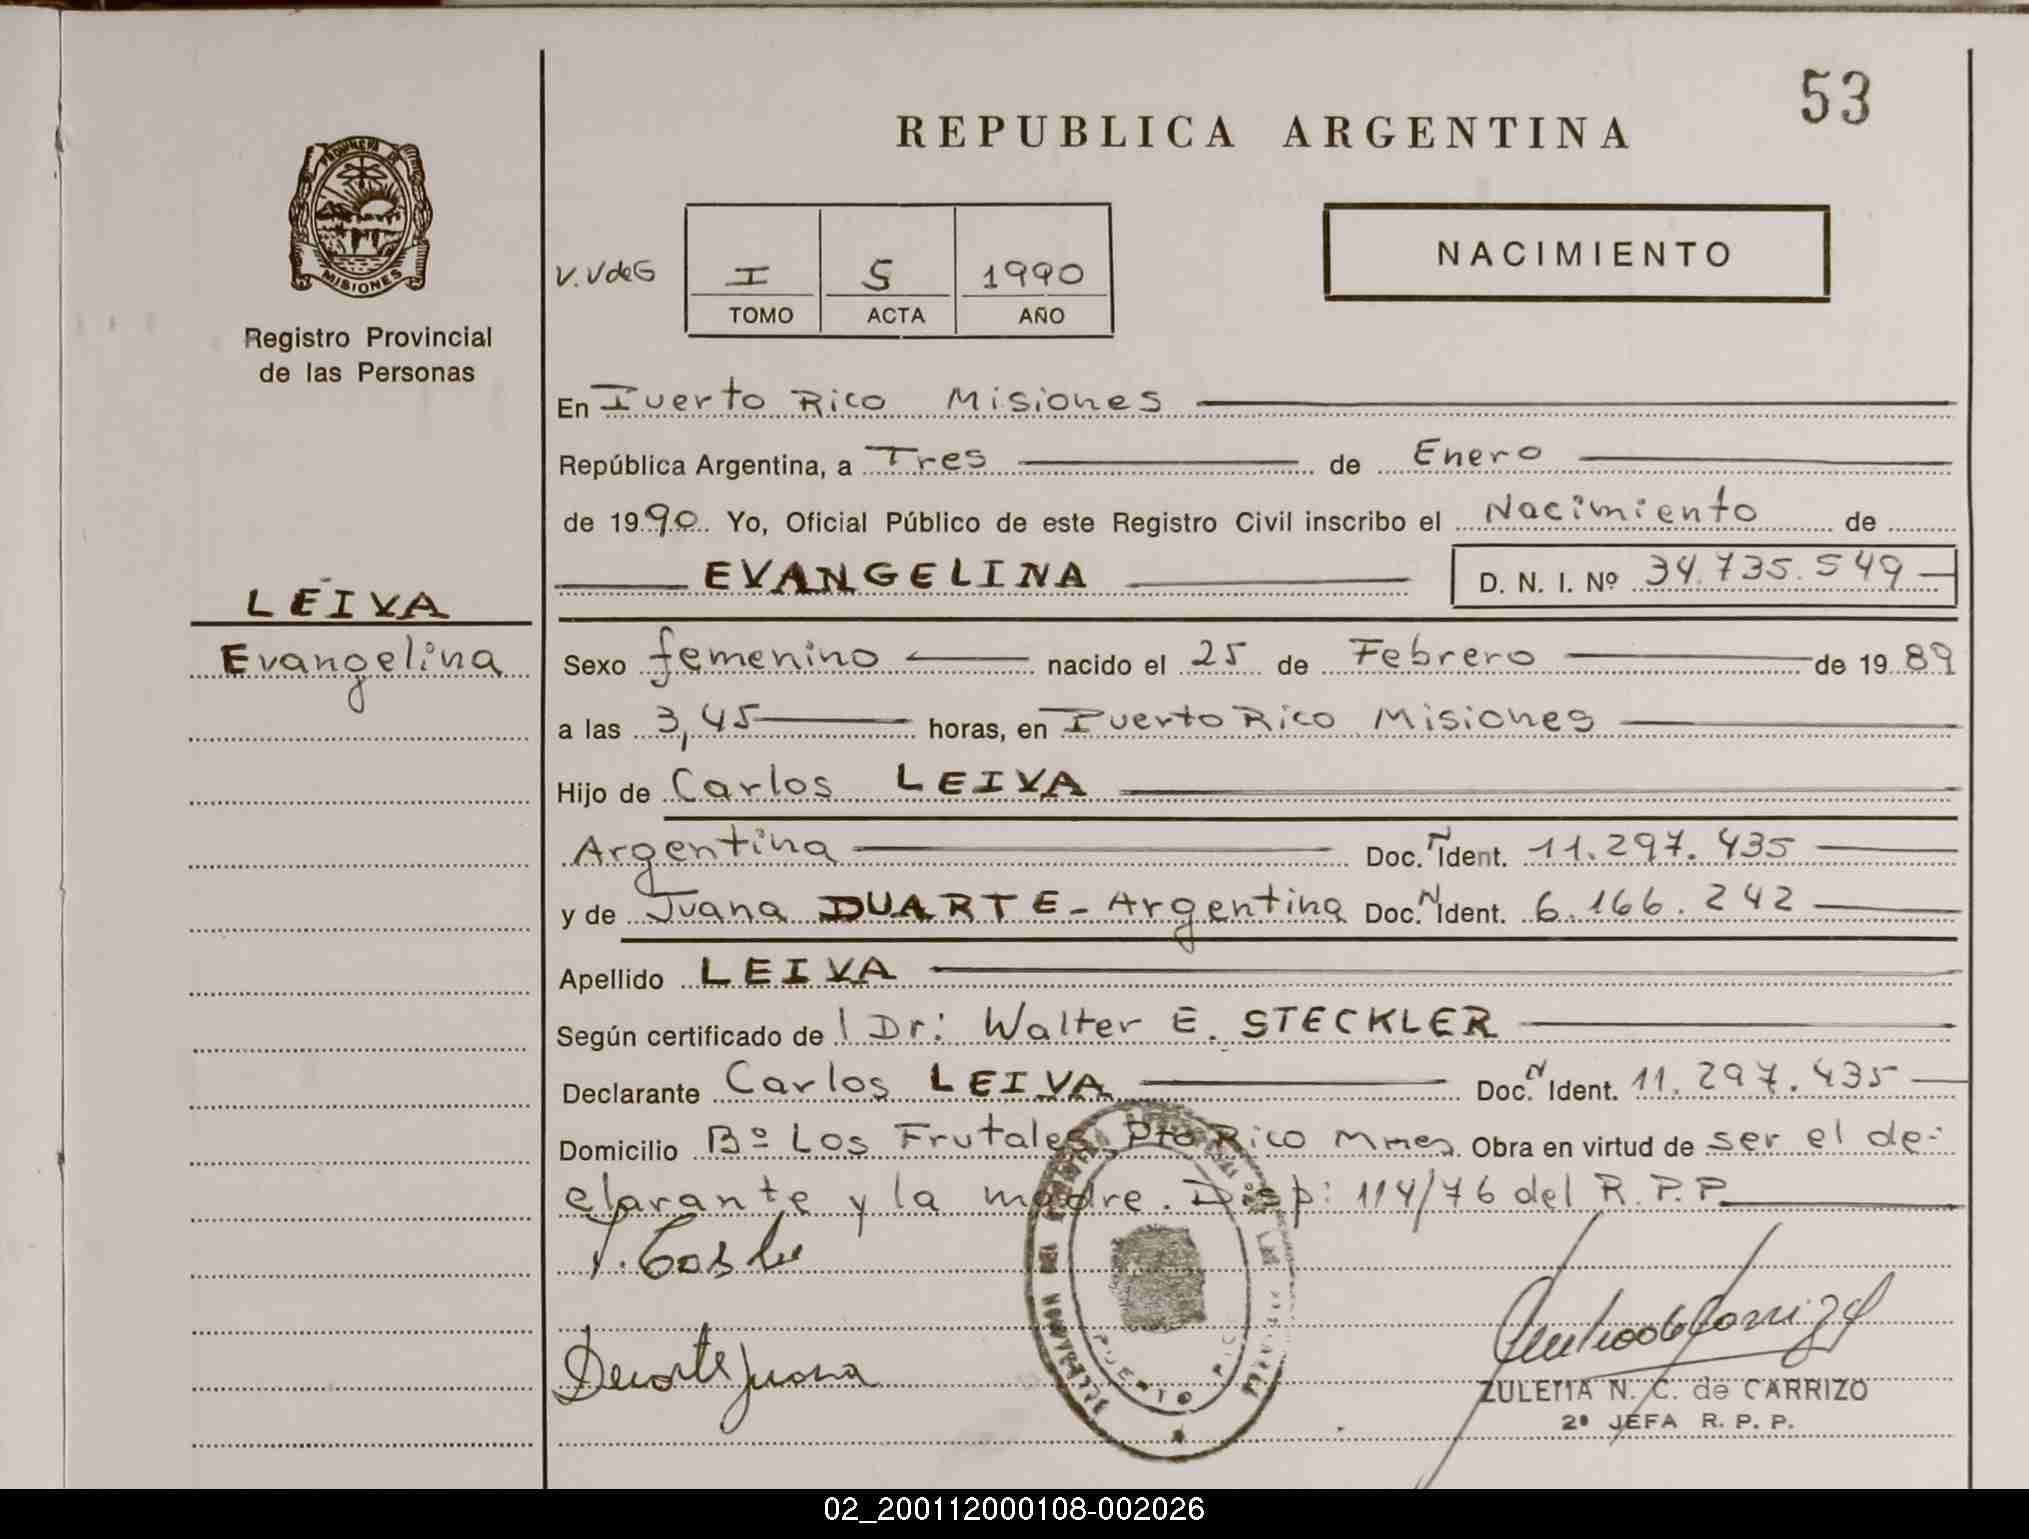 53
REPUBLICA ARGENTINA
PROVINCIA DE
MISIONES
Registro Provincial
de las Personas
V.VdeG
I S 1990
TOMO ACTA AÑO
NACIMIENTO
En Puerto Rico Misiones
República Argentina, a Tres de Enero
de 1990. Yo, Oficial Público de este Registro Civil inscribo el Nacimiento de
EVANGELINA D. N. I. Nº 34.735.549
LEIVA
Evangelina
Sexo femenino nacido el 25 de Febrero de 1989
a las 3,45 horas, en Puerto Rico Misiones
Hijo de Carlos LEIVA
Argentina Doc. N Ident. 11.297.435
y de Juana DUARTE - Argentina Doc. N Ident. 6.166.242
Apellido LEIVA
Según certificado de l Dr: Walter E. STECKLER
Declarante Carlos LEIVA Doc. N Ident. 11.297.435
Domicilio Bº Los Frutales Pto Rico Mnes. Obra en virtud de ser el de-
clarante y la madre. Disp: 114/76 del R.P.P.
Duarte Juana
PUERTO RICO
ZULEMA N. C. de CARRIZO
2ª JEFA R. P. P.
02_200112000108-002026